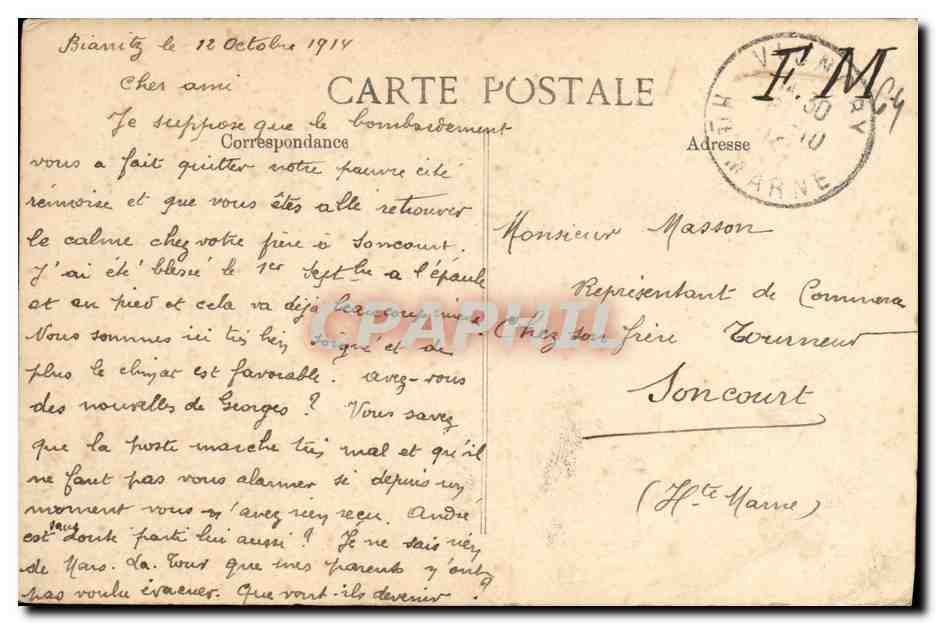 Biarritz le 12 Octobre 1914
Cher ami
CARTE POSTALE
F M
Je suppose que le bombardement
Correspondance
Adresse
vous a fait quitter notre pauvre cité
rémoise et que vous êtes allé retrouver
le calme chez votre frère à Soncourt.
J'ai été blessé le 1er Sept à l'épaule
et au pied et cela va déjà beaucoup mieux.
Nous sommes ici très bien soigné et de
plus le climat est favorable. avez-vous
des nouvelles de Georges ? Vous savez
que la poste marche très mal et qu'il
ne faut pas vous alarmer si depuis un
moment vous n'avez rien reçu. André
est sans doute parti lui aussi ? Je ne sais rien
de Mars-la-Tour que mes parents n'ont
pas voulu évacuer. Que vont-ils devenir ?
Monsieur Masson
Représentant de Commerce
Chez son frère Tourneur
Soncourt
(Hte Marne)
VIGNORY
14.30
10
HTE MARNE
CPAPHIL